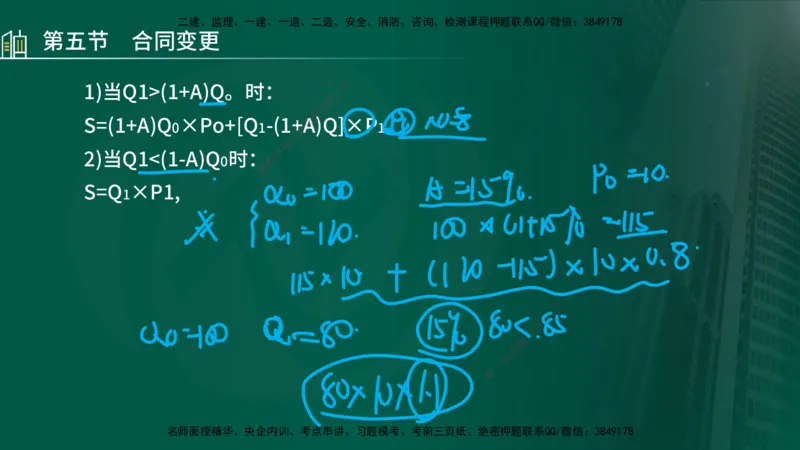 二建、监理、一建、一造、二造、安全、消防、咨询、检测课程押题联系QQ/微信：3849178
第五节 合同变更
1)当Q1>(1+A)Q。时：
S=(1+A)Q0×Po+[Q1-(1+A)Q]×P1
2)当Q1<(1-A)Q0时：
S=Q1×P1,
Q0=100 A=15%. P0=10.
Q1=120. 100×(1+15%)=115
115×10+(120-115)×10×0.8
Q0=100 Q1=80. 15% 80<.85
80×10×1.1
名师面授精华、央企内训、考点串讲、习题模考、考前三页纸、绝密押题联系QQ/微信：3849178